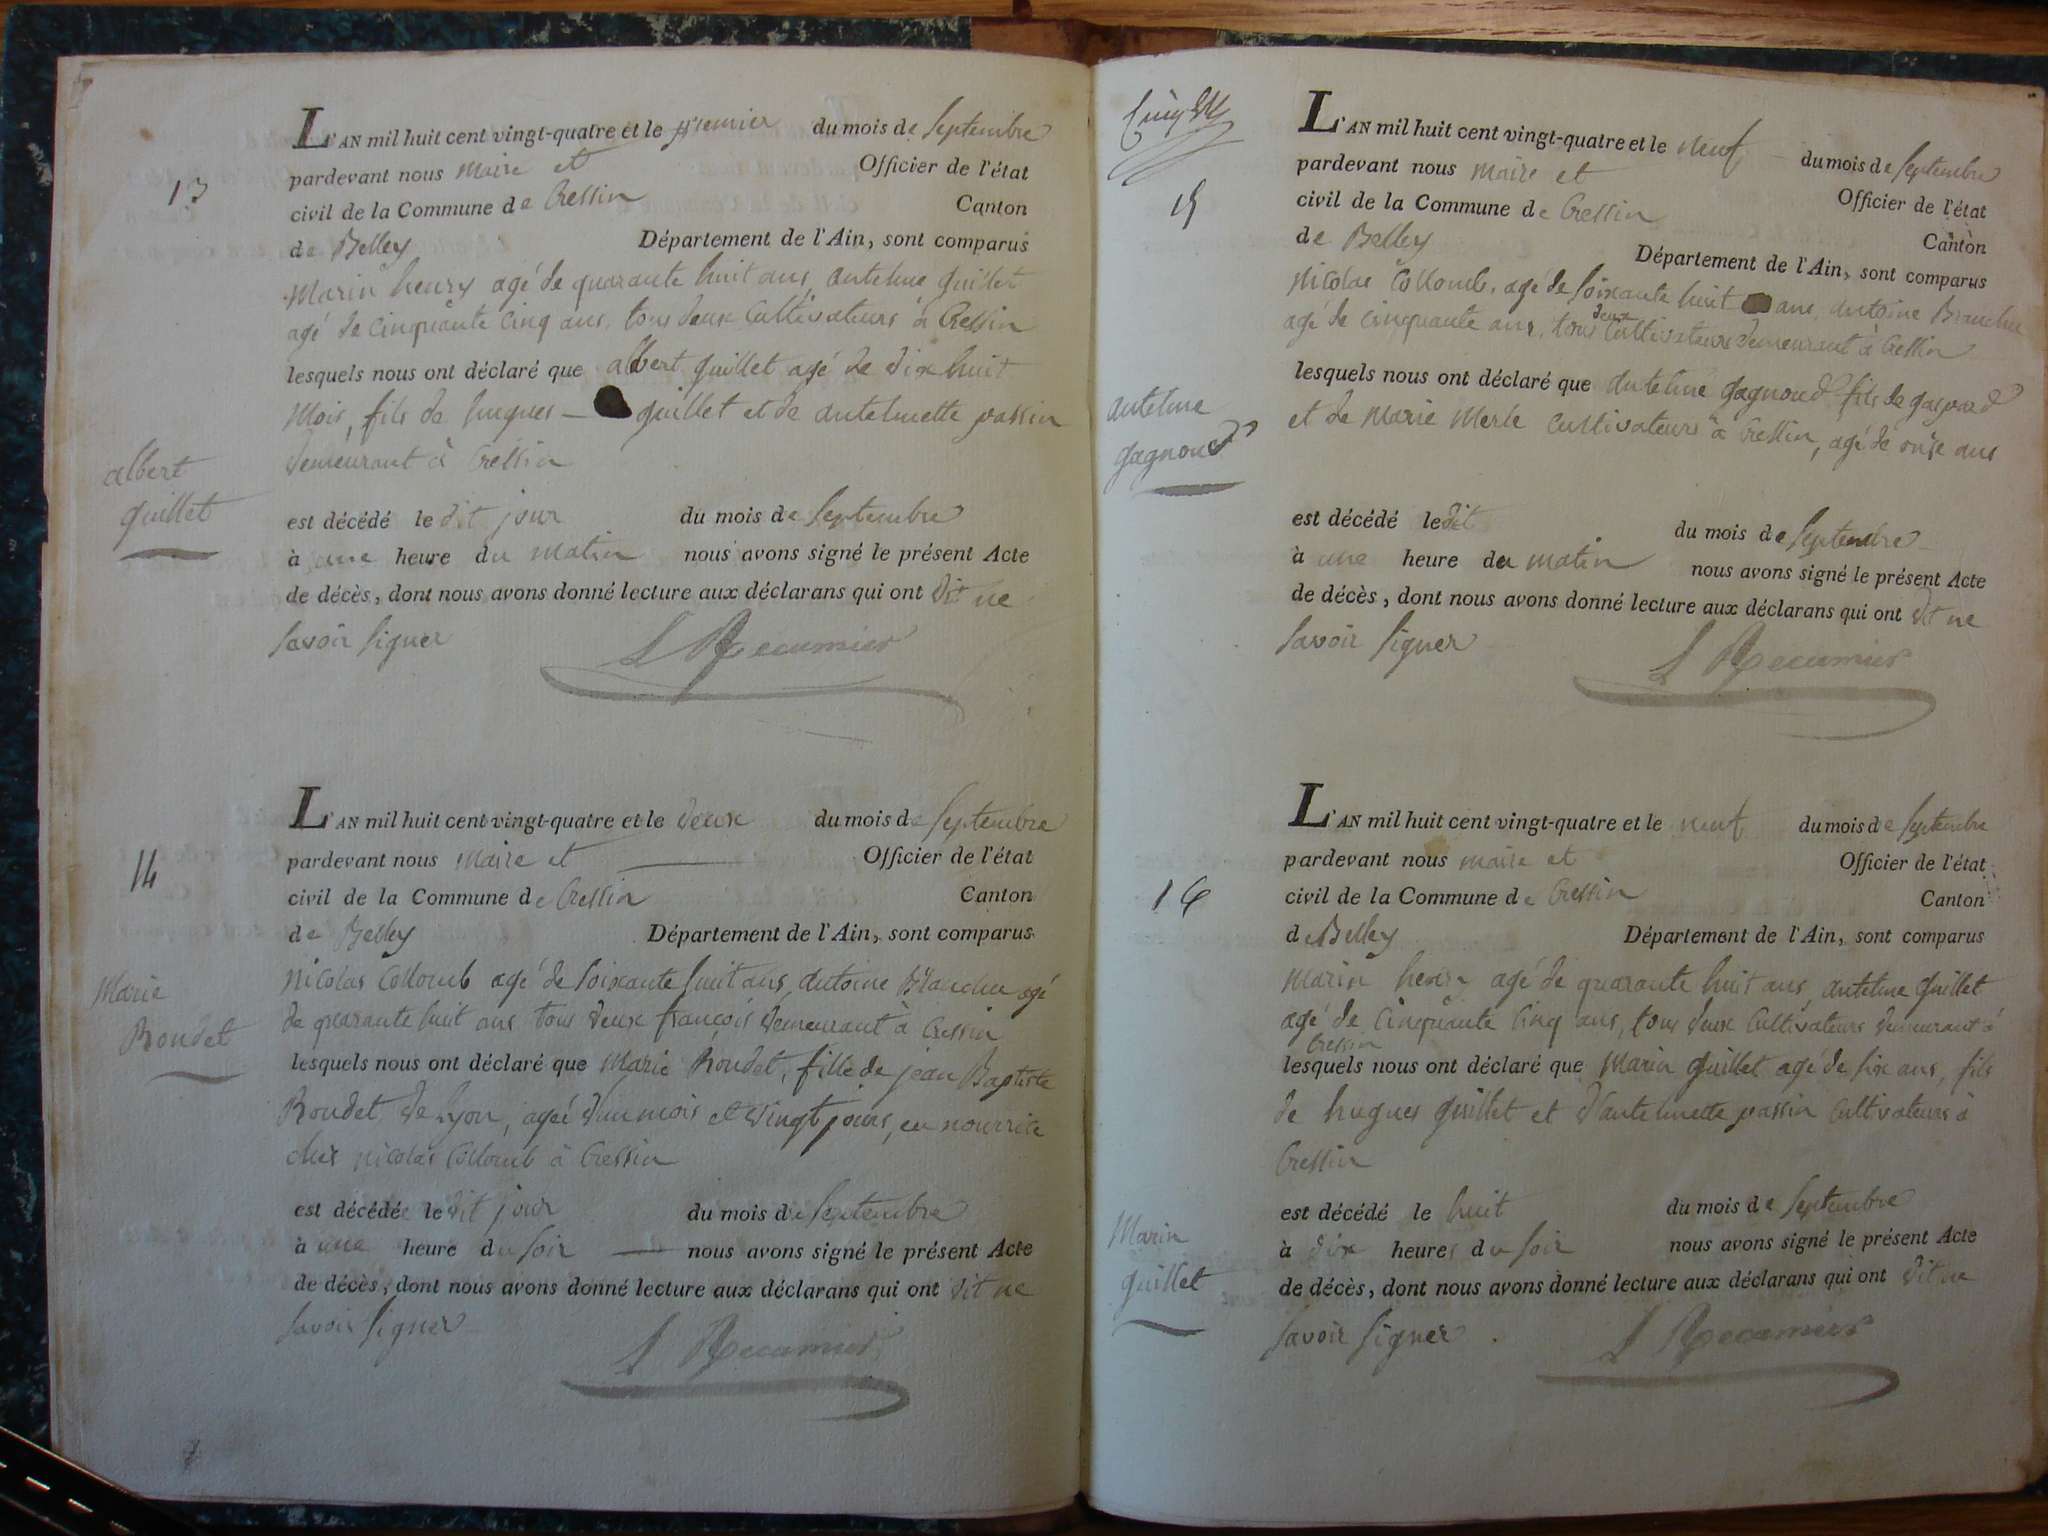 13
L'AN mil huit cent vingt-quatre et le premier du mois de Septembre
pardevant nous maire et Officier de l'état
civil de la Commune de Cressin Canton
de Belley Département de l'Ain, sont comparus
Marin henry agé de quarante huit ans, antelme guillet
agé de cinquante cinq ans, tous deux Cultivateurs à Cressin
lesquels nous ont déclaré que albert guillet agé de dix huit
Mois, fils de hugues guillet et de antelmette passin
demeurant à Cressin
albert
guillet
est décédé le dit jour du mois de Septembre
à une heure du matin nous avons signé le présent Acte
de décès, dont nous avons donné lecture aux déclarans qui ont dit ne
Savoir Signer
L Recamier
14
L'AN mil huit cent vingt-quatre et le deux du mois de Septembre
pardevant nous Maire et Officier de l'état
civil de la Commune de Cressin Canton
de Belley Département de l'Ain, sont comparus
Marie
Roudet
Nicolas Collomb agé de Soixante huit ans, antoine Blanchu agé
de quarante huit ans tous deux françois demeurant à Cressin
lesquels nous ont déclaré que Marie Roudet, fille de jean Baptiste
Roudet de Lyon, ageé d'un mois et vingt jours, en nourrice
chez nicolas Collomb à Cressin
est décédée le dit jour du mois de Septembre
à une heure du Soir nous avons signé le présent Acte
de décès, dont nous avons donné lecture aux déclarans qui ont dit ne
Savoir Signer
L Recamier
15
L'AN mil huit cent vingt-quatre et le neuf du mois de Septembre
pardevant nous maire et Officier de l'état
civil de la Commune de Cressin Canton
de Belley Département de l'Ain, sont comparus
Nicolas Collomb, agé de Soixante huit ans, antoine Blanchu
agé de cinquante ans, tous deux Cultivateurs demeurant à Cressin
lesquels nous ont déclaré que antelme gagnoud fils de gaspard
et de Marie Merle Cultivateurs à Cressin, agé de onze ans
antelme
gagnoud
est décédé le dit du mois de Septembre
à une heure du matin nous avons signé le présent Acte
de décès, dont nous avons donné lecture aux déclarans qui ont dit ne
Savoir Signer
L Recamier
16
L'AN mil huit cent vingt-quatre et le neuf du mois de Septembre
pardevant nous maire et Officier de l'état
civil de la Commune de Cressin Canton
de Belley Département de l'Ain, sont comparus
Marin henry agé de quarante huit ans, antelme guillet
agé de Cinquante Cinq ans, tous deux Cultivateurs demeurant à
Cressin
lesquels nous ont déclaré que Marin guillet agé de six ans, fils
de hugues guillet et d'antelmette passin Cultivateurs à
Cressin
Marin
guillet
est décédé le huit du mois de Septembre
à dix heures du Soir nous avons signé le présent Acte
de décès, dont nous avons donné lecture aux déclarans qui ont dit ne
Savoir Signer.
L Recamier